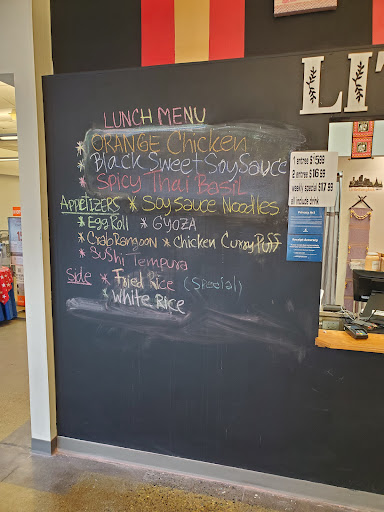 LIT
LUNCH MENU
* ORANGE Chicken
* Black Sweet Soy Sauce
* Spicy Thai Basil
APPETIZERS * Soy Sauce Noodles
* Egg Roll * GYOZA
* Crab Rangoon * Chicken Curry Puff
* Sushi Tempura
Side * Fried Rice (Special)
* White Rice
1 entree $15.99
2 entree $16.99
weekly special $17.99
all include drink